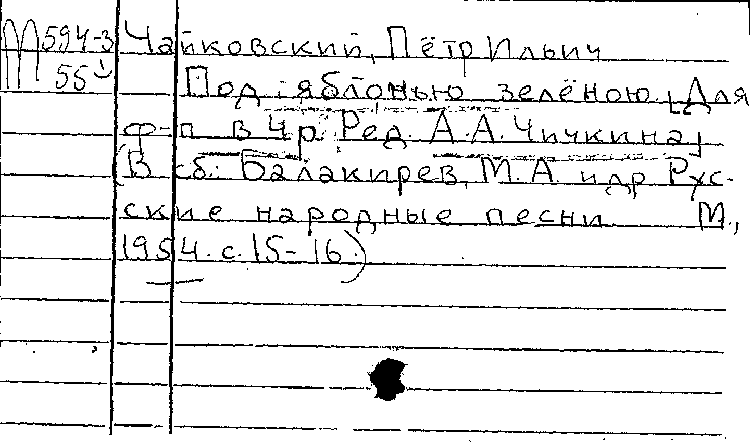 М594-3 Чайковский, Пётр Ильич
55 Под яблонью зелёною [Для
ф-п в 4 р. Ред. А.А. Чичкина]
(В сб: Балакирев, М.А. и др Рус-
ские народные песни М.,
1954. с. 15-16.)